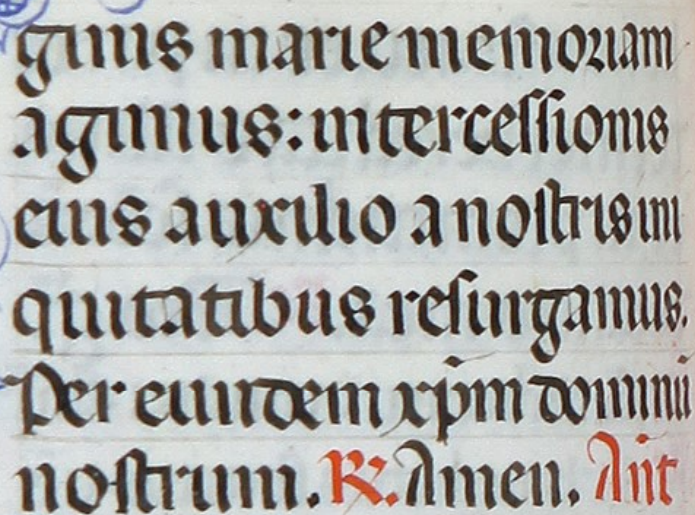 ginis marie memoriam
agimus: intercessionis
eius auxilio a nostris ini
quitatibus resurgamus.
Per eiusdem xp̄m dominū
nostrum. R. Amen. Añt